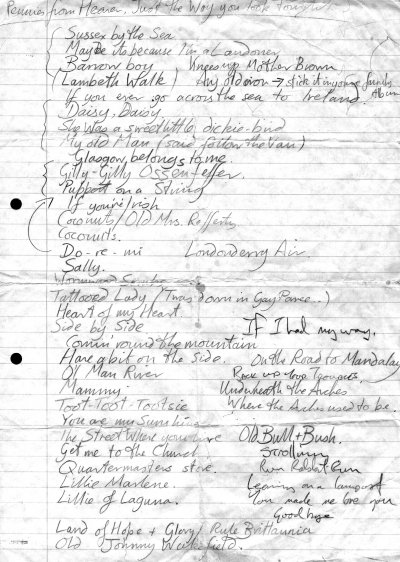 Pennies from Heaven, Just the Way you look tonight
Sussex by the Sea
Maybe its because I'm a Londoner
Barrow boy Knees up Mother Brown
(Lambeth Walk) Any old iron → stick it in your family Album
If you ever go across the sea to Ireland.
Daisy, Daisy
She was a sweet little dickie-bird
My old Man (said follow the van)
Glasgow belongs to me
Gilly-Gilly Ossenfeffer.
Puppet on a String
If you're Irish
Coconuts / Old Mrs. Rafferty
Coconuts.
Do-re-mi Londonderry Air.
Sally.
Tattooed Lady (Twas down in Gay Paree..)
Heart of my Heart.
Side by Side If I had my way.
Comin round the mountain
Have a bit on the side. On the Road to Mandalay
Ol Man River
Mammy. Underneath the Arches
Toot-Toot-Tootsie Where the Arches used to be.
You are my Sunshine
The Street where you live Old Bull + Bush.
Get me to the Church. Strolling
Quartermasters store. Run Rabbit Run
Lillie Marlene. Leaning on a lampost
Lillie of Laguna. You made me love you
Goodbye
Land of Hope + Glory / Rule Brittannia
Old Johnny